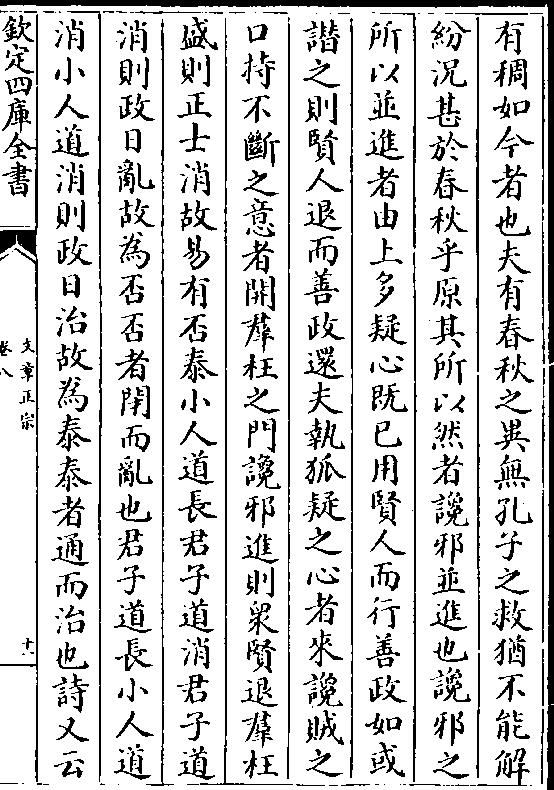 有稠如今者也夫有春秋之異無孔子之救猶不能解
紛況甚於春秋乎原其所以然者讒邪並進也讒邪之
所以並進者由上多疑心既已用賢人而行善政如或
譖之則賢人退而善政還夫執狐疑之心者來讒賊之
口持不斷之意者開羣枉之門讒邪進則衆賢退羣枉
盛則正士消故易有否泰小人道長君子道消君子道
消則政日亂故為否否者閉而亂也君子道長小人道
消小人道消則政日治故為泰泰者通而治也詩又云
欽定四庫全書
文章正宗
卷八
十一